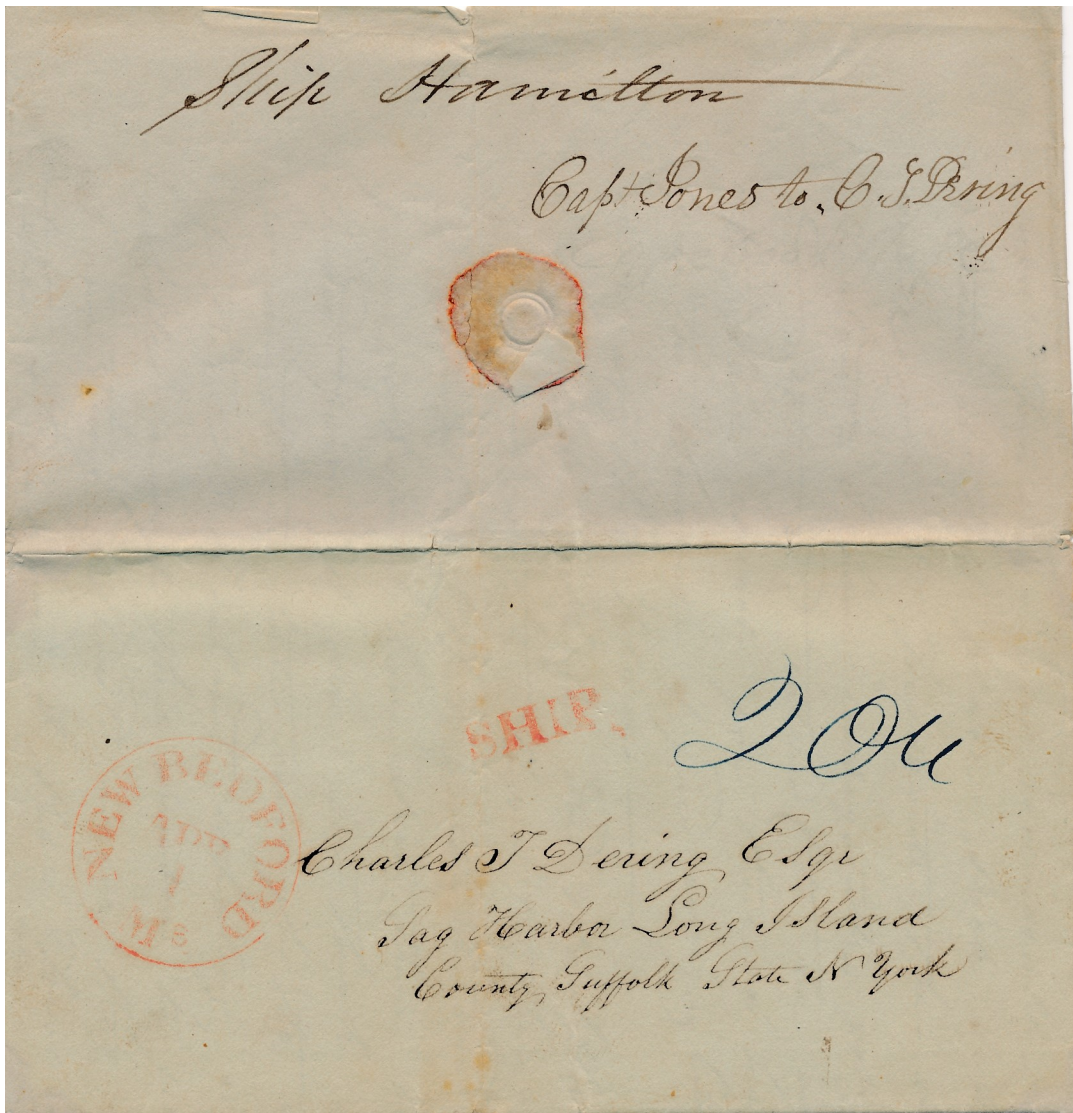 Ship Hamilton
Capt Jones to C. T. Dering
SHIP.
20
NEW BEDFORD
APR
1
Ms
Charles T Dering Esqr
Sag Harbor Long Island
County Suffolk State N York